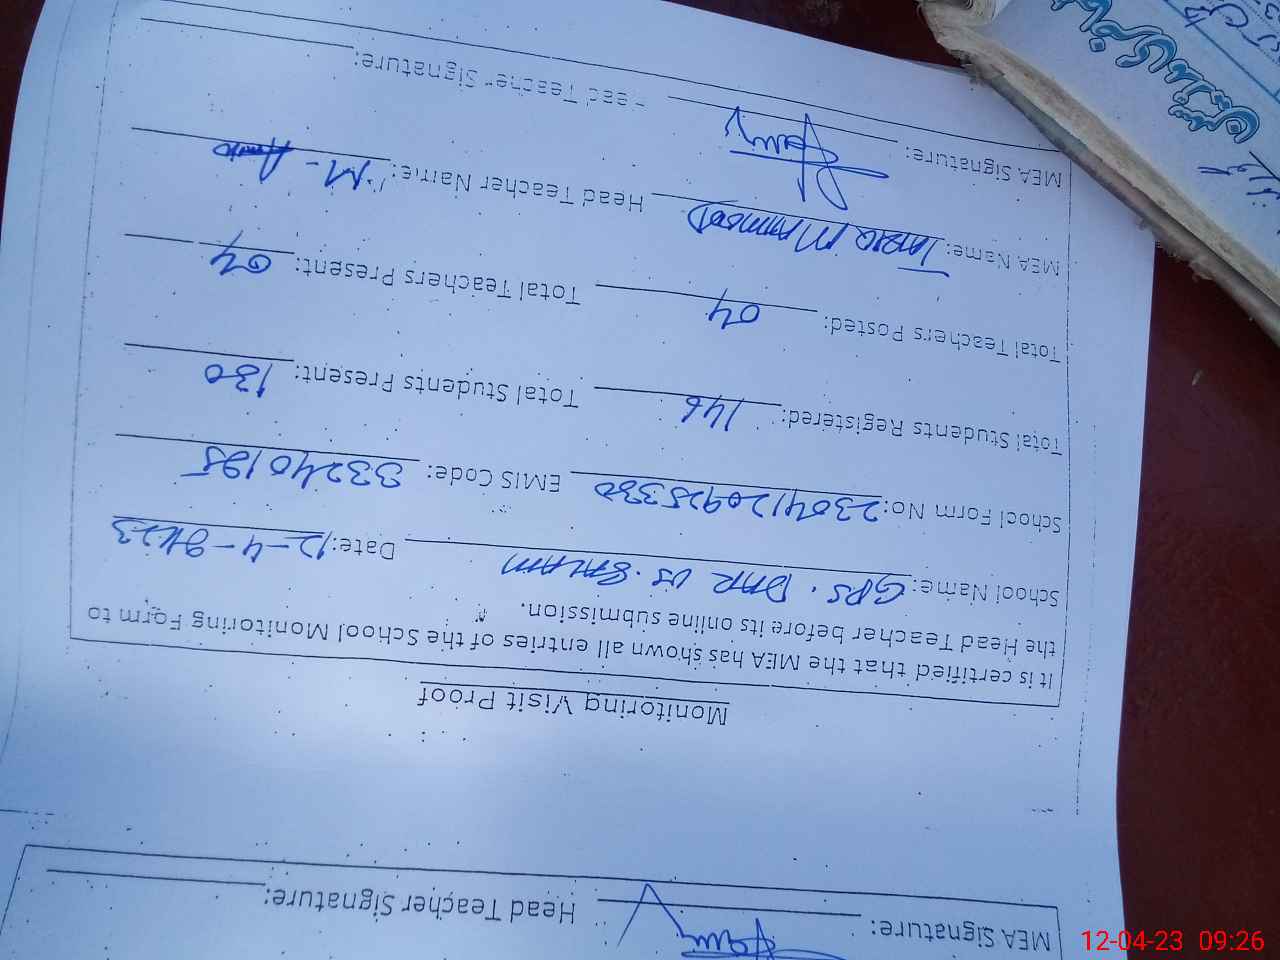 Monitoring Visit Proof
It is certified that the MEA has shown all entries of the School Monitoring Form to
the Head Teacher before its online submission.
School Name: GPS. DAR US. SALAM Date: 12-4-2023
School Form No: 230412092533 EMIS Code: 33240195
Total Students Registered: 146 Total Students Present: 130
Total Teachers Posted: 04 Total Teachers Present: 04
MEA Name: TARIQ MAHMOOD Head Teacher Name: M-
MEA Signature: Head Teacher Signature:
MEA Signature: Head Teacher Signature:
12-04-23 09:26